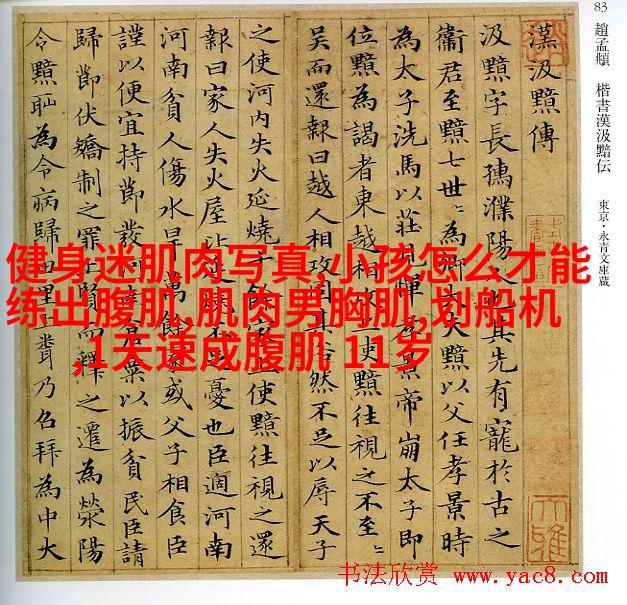 83 趙孟頫 楷書漢汲黯伝 東京・永青文庫蔵
漢汲黯傳
汲黯字長孺濮陽人也其先有寵於古之
衛君至黯七世〻為卿大夫黯以父任孝景時
為太子洗馬以莊見憚孝景帝崩太子即
位黯為謁者東越相攻上使黯往視之不至〻
吳而還報曰越人相攻固其俗然不足以辱天子
之使河内失火延燒千餘家上使黯往視之還
報曰家人失火屋比延燒不足憂也臣適河南
河南貧人傷水旱萬餘家或父子相食臣
謹以便宜持節發河南倉粟以振貧民臣請
歸節伏矯制之罪上賢而釋之遷為滎陽
令黯恥為令病歸田里上聞乃召拜為中大
健身迷肌肉写真,小孩怎么才能
练出腹肌,肌肉男胸肌,划船机
,1天速成腹肌 11岁
书法欣赏 www.yac8.com